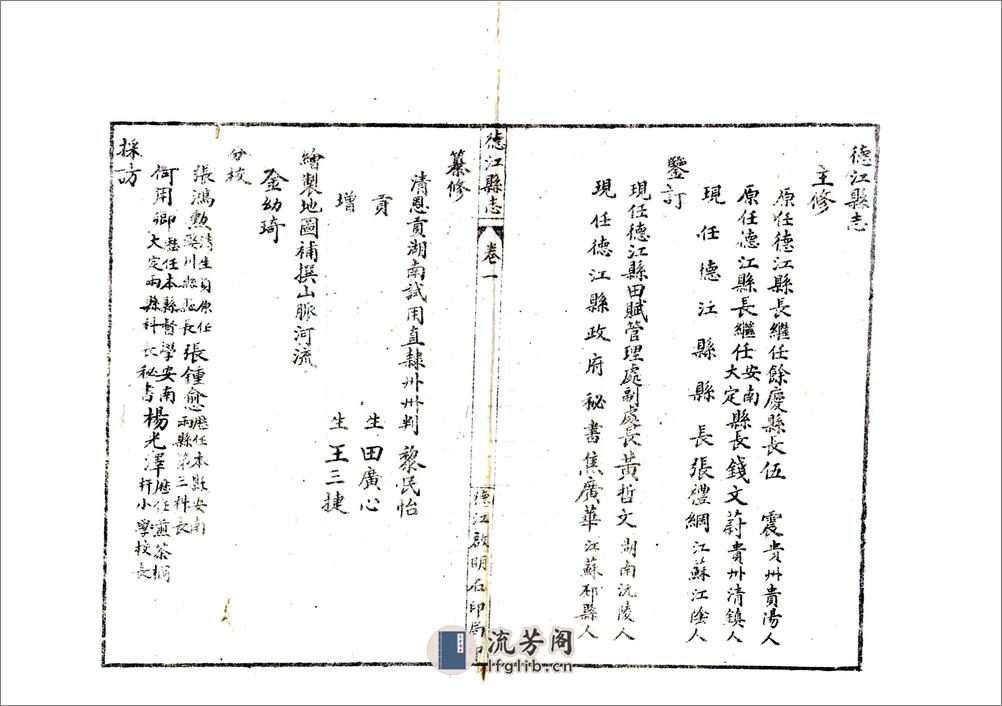 德江縣志
主修
原任德江縣長繼任餘慶縣長伍　震貴州貴陽人
原任德江縣長繼任安南大定縣長錢文蔚貴州清鎮人
現任德江縣縣長張禮綱江蘇江陰人
鑒訂
現任德江縣田賦管理處副處長黃哲文湖南沅陵人
現任德江縣政府秘書焦廣華江蘇邳縣人
德江縣志
卷一
德江啟明石印局印
纂修
清恩貢湖南試用直隸州州判黎民怡
貢生田廣心
增生王三捷
繪製地圖補撰山脈河流
金幼琦
分校
張鴻勲清生員原任
川縣縣長張鍾愈歷任本縣安南
兩縣第三科長
何用卿歷任本縣督學安南
大定兩縣科長秘書楊光澤歷任煎茶
小學校長
採訪
流芳阁
lfglib.cn